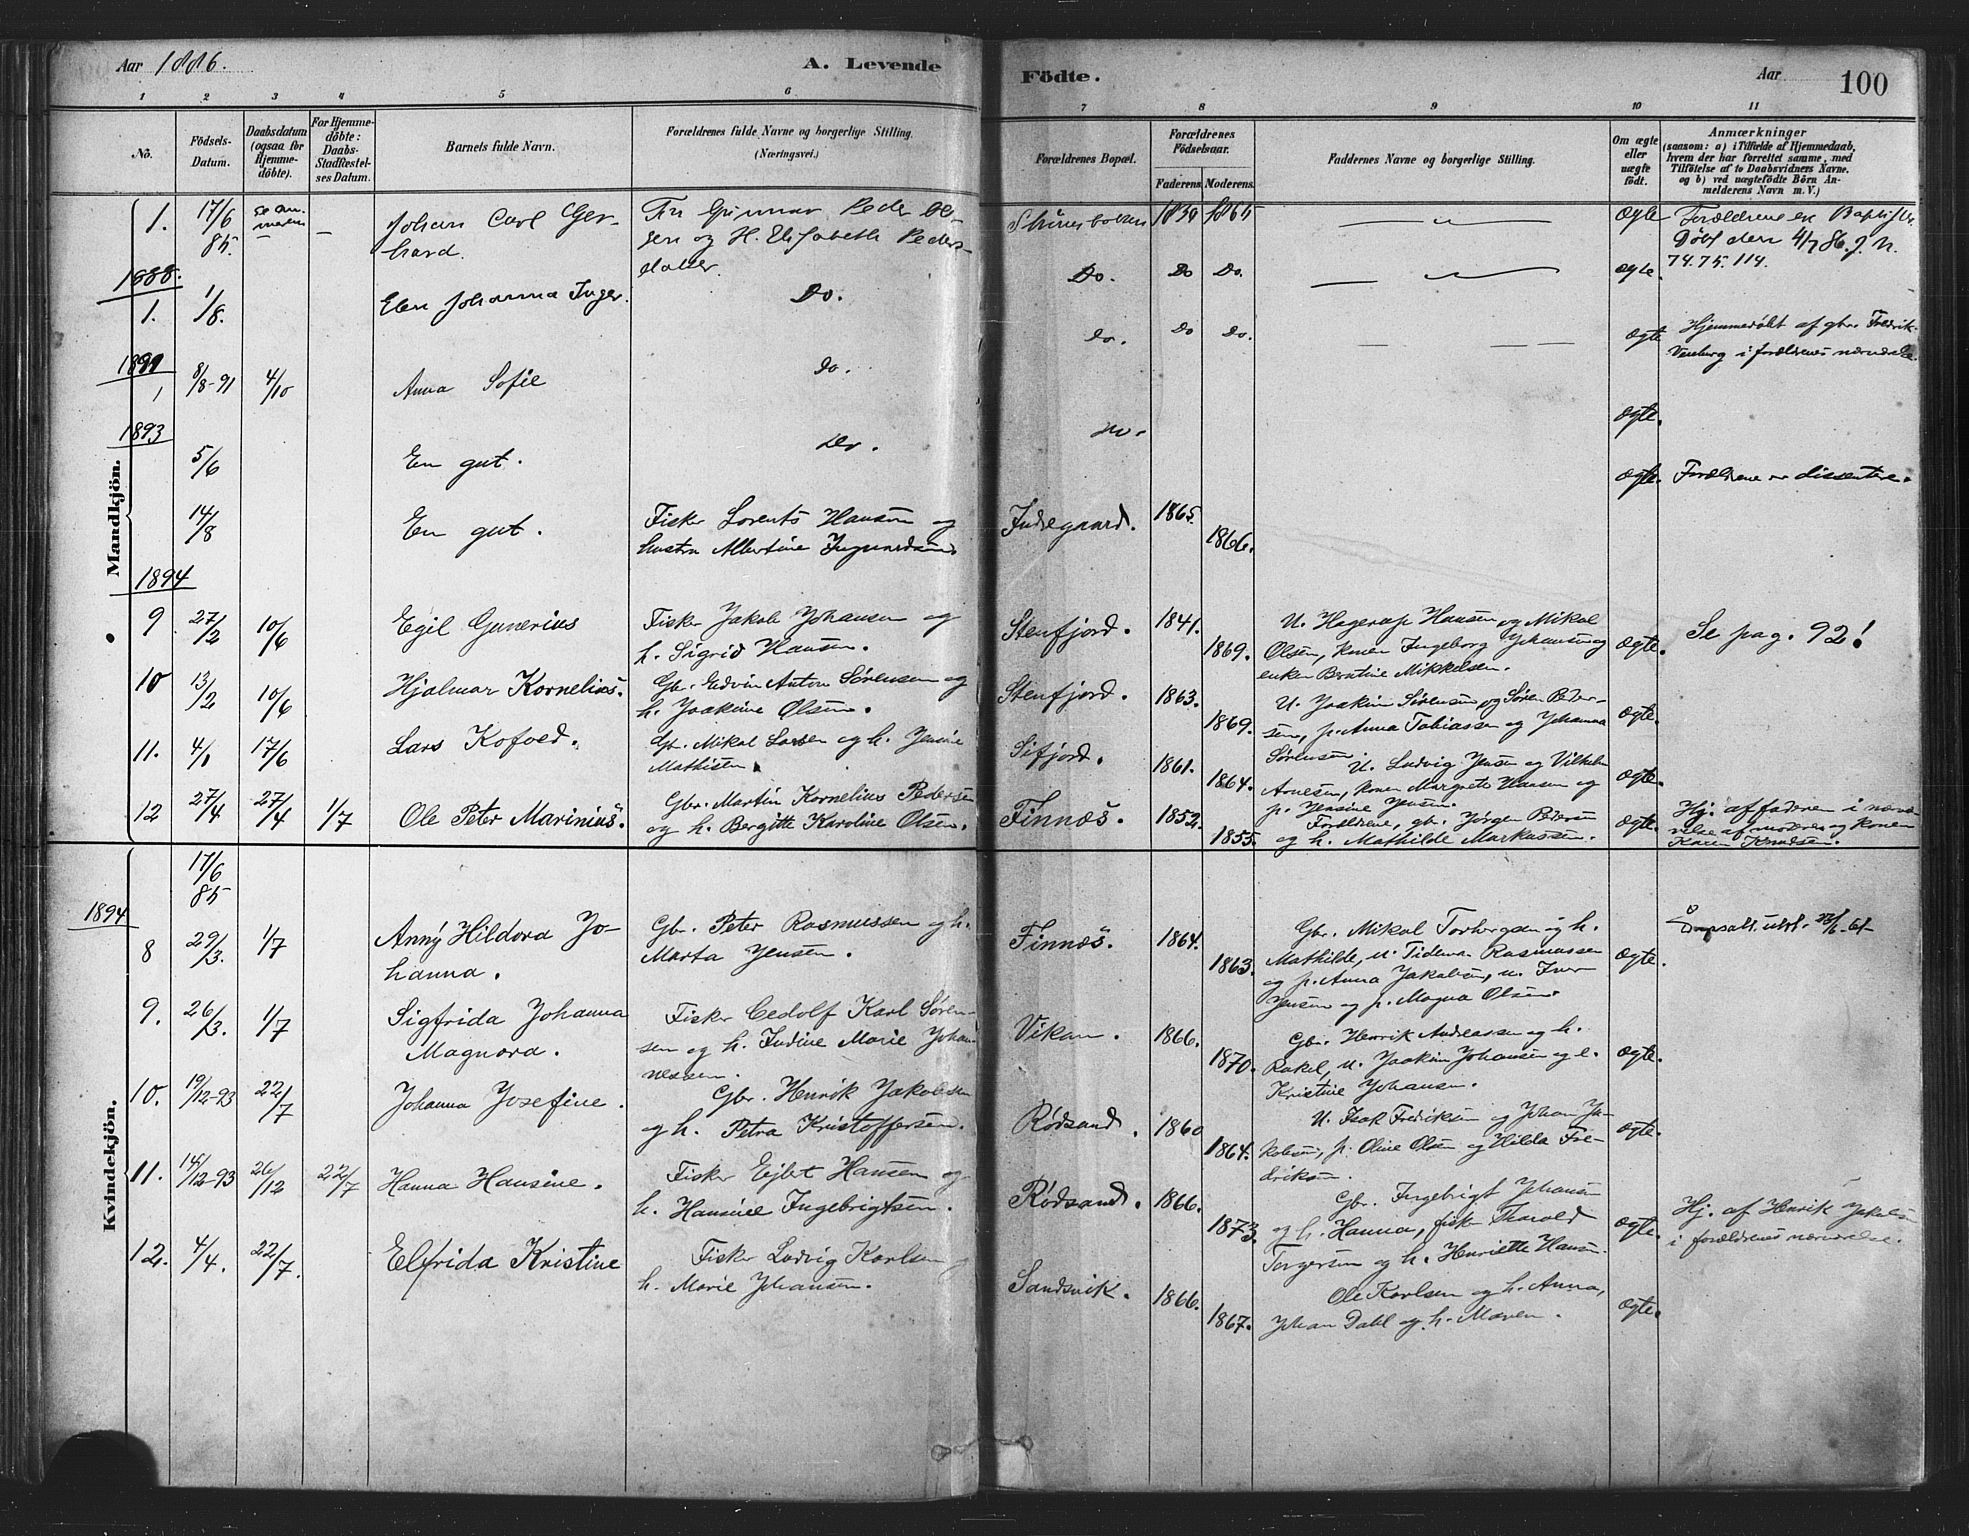 Aar 1886.
A. Levende
Födte.
Aar
100
1 2 3 4 5 6 7 8 9 10 11
No.
Födsels-
Datum.
Daabsdatum
(ogsaa for
Hjemme-
döbte).
For Hjemme-
döbte:
Daabs-
Stadfæstel-
ses Datum.
Barnets fulde Navn.
Forældrenes fulde Navne og borgerlige Stilling.
(Næringsvei.)
Forældrenes Bopæl.
Forældrenes
Födselsaar.
Faderens. Moderens.
Faddernes Navne og borgerlige Stilling.
Om ægte
eller
uægte
födt.
Anmærkninger
(saasom: a) i Tilfælde af Hjemmedaab,
hvem der har forrettet samme, med
Tilföielse af to Daabsvidners Navne.
og b) ved uægtefödte Börn An-
melderens Navn m. V.)
Mandkjön.
1. 17/6 85. Johan Carl Ger-
hard.
Gunnar Peder
og H. Elisabeth Peders-
datter.
1839 1865 ægte Forældrene er Baptister.
Döbt den 4/7 86. J. N.
74.75.114.
1888.
1. 1/8. Elen Johanna Inger. Do. Do. Do Do. ægte.
1891
1 8/8-91 4/10 Anna Sofie Do. Do. Do Do. ægte Hjemmedöbt af gbr. Fredrik
i forældrenes nærværelse.
1893
5/6 En gut. Do. Do. ægte.
14/8 En gut. Fisker Lorents Hansen og
hustru Albertine Ingvardsen
Indregaard. 1865. 1866. ægte. Forældrene er dissentere.
1894
9 27/2 10/6 Egil Gunerius Fisker Jakob Johansen og
h. Sigrid Hansen.
Stenfjord. 1841. 1869. U. Hagerup Hansen og Mikal
Olsen, konen Ingeborg Johansen og
enken Berntine Mikkelsen.
ægte. Se pag. 92!
10 13/2 10/6 Hjalmar Kornelius. Gbr. Edvin Anton Sörensen og
h. Joakine Olsen.
Stenfjord. 1863. 1869. U. Joakim Sörensen og Sören Peder-
sen, p. Anna Tobiassen og Johanna
Sörensen
ægte.
11. 4/1 17/6 Lars Kofoed. Gbr. Mikal Larsen og h. Jensine
Mathisen
Sifjord. 1861. 1864. U. Ludvig Jensen og Vilhelm
Arnesen, konen Margrete Hansen og
p. Jensine Jensen.
ægte.
12 27/4 27/4 1/7 Ole Peter Marinius. Gbr. Martin Kornelius Pedersen
og h. Bergitte Karoline Olsen.
Finnæs. 1852. 1855. Forældrene, gbr. Jörgen Pedersen
og h. Mathilde Markussen.
ægte. Hj. af faderen i nærvæ-
relse af moderen og konen
Karen Knudsen.
Kvindekjön.
17/6 85
1894
8 29/3. 1/7 Anny Hildora Jo-
hanna.
Gbr. Peter Rasmussen og h.
Marta Jensen.
Finnæs. 1864. 1863. Gbr. Mikal Torbergsen og h.
Mathilde, u. Tideman Rasmussen
og p. Anna Jakobsen, u. Iver
Jensen og p. Magna Olsen.
ægte.
9. 26/3. 1/7 Sigfrida Johanna
Magnora.
Fisker Cedolf Karl Sören-
sen og h. Indine Marie Johan-
nessen.
Vikan. 1866. 1870. Gbr. Henrik Andreassen og h.
Rakel, u. Joakim Johansen og e.
Kristine Johansen.
ægte.
10. 19/12-93 22/7 Johanna Josefine. Gbr. Henrik Jakobsen
og h. Petra Kristoffersen.
Rödsand. 1860 1864. U. Isak Fredriksen og Johan Ja-
kobsen, p. Oline Olsen og Hilda Fre-
driksen.
ægte.
11. 14/12-93 26/12 22/7 Hanna Hansine. Fisker Ejlert Hansen og
h. Hansine Ingebrigtsen.
Rödsand. 1866. 1873. Gbr. Ingebrigt Johansen
og h. Hanna, fisker Tharald
Torgersen og h. Henriette Hansen.
ægte. Hj. af Henrik Jakobsen
i forældrenes nærværelse.
12. 4/4. 22/7. Elfrida Kristine Fisker Ludvig Karlsen
h. Marie Johansen.
Sandsvik. 1866. 1867. Ole Karlsen og h. Anna,
Johan Dahl og h. Maren.
ægte.